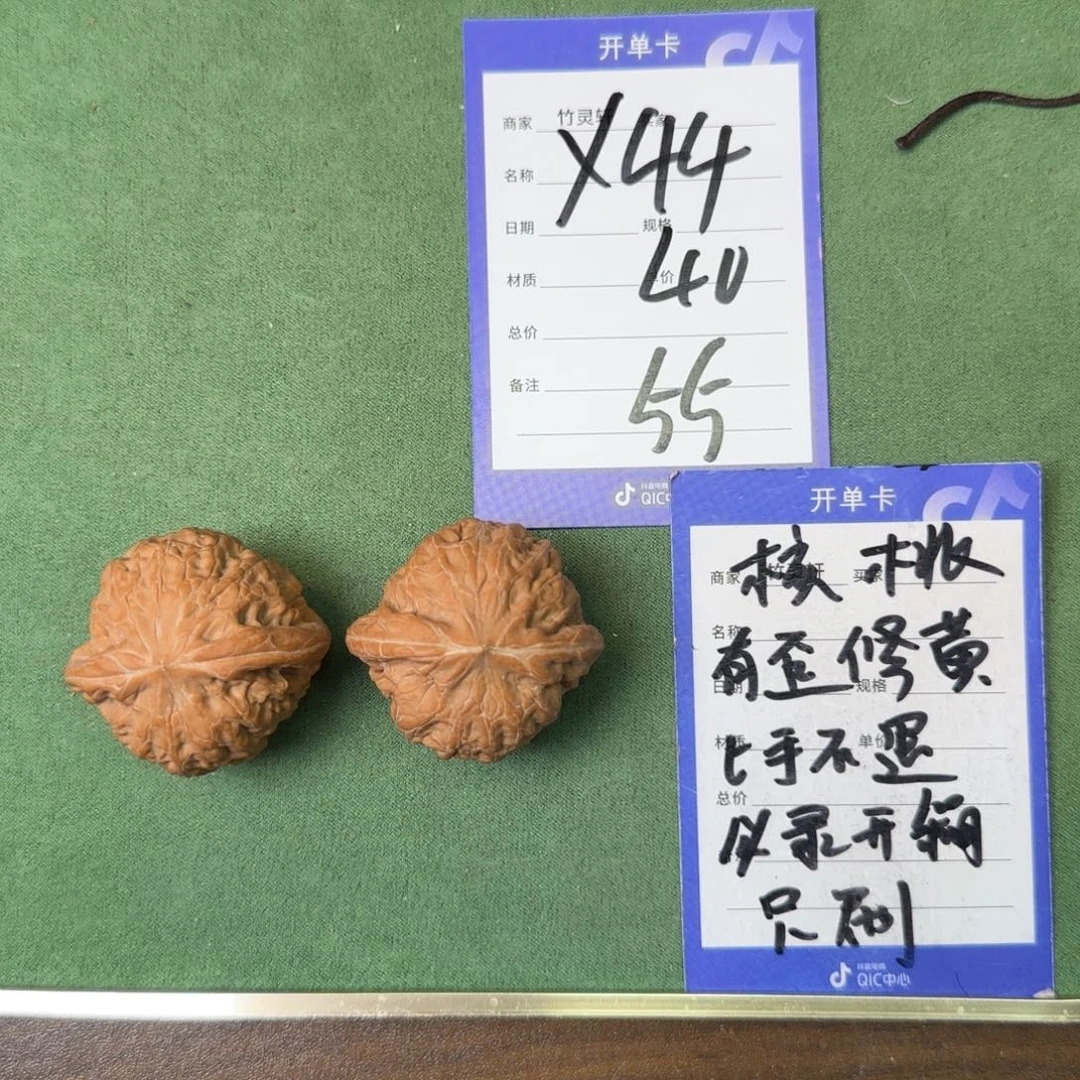 开单卡
商家 竹灵轩
X44
名称
日期 规格
40
材质
总价
55
备注
抖音电商
QIC
开单卡
商家 买家
核桃
名称
有歪修黄
日期 规格
上手不退
材质 单价
总价
必录开箱
只刷
抖音电商
QIC中心